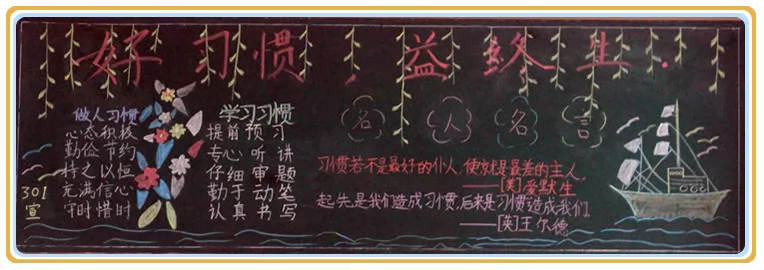 好习惯，益终生.
做人习惯
心态积极
勤俭节约
持之以恒
充满信心
守时惜时
301
宣
学习习惯
提前预习
专心听讲
仔细审题
勤于动笔
认真书写
名人名言
习惯若不是最好的仆人，便就是最差的主人。
——[美]爱默生
起先是我们造成习惯，后来是习惯造成我们。
——[英]王尔德